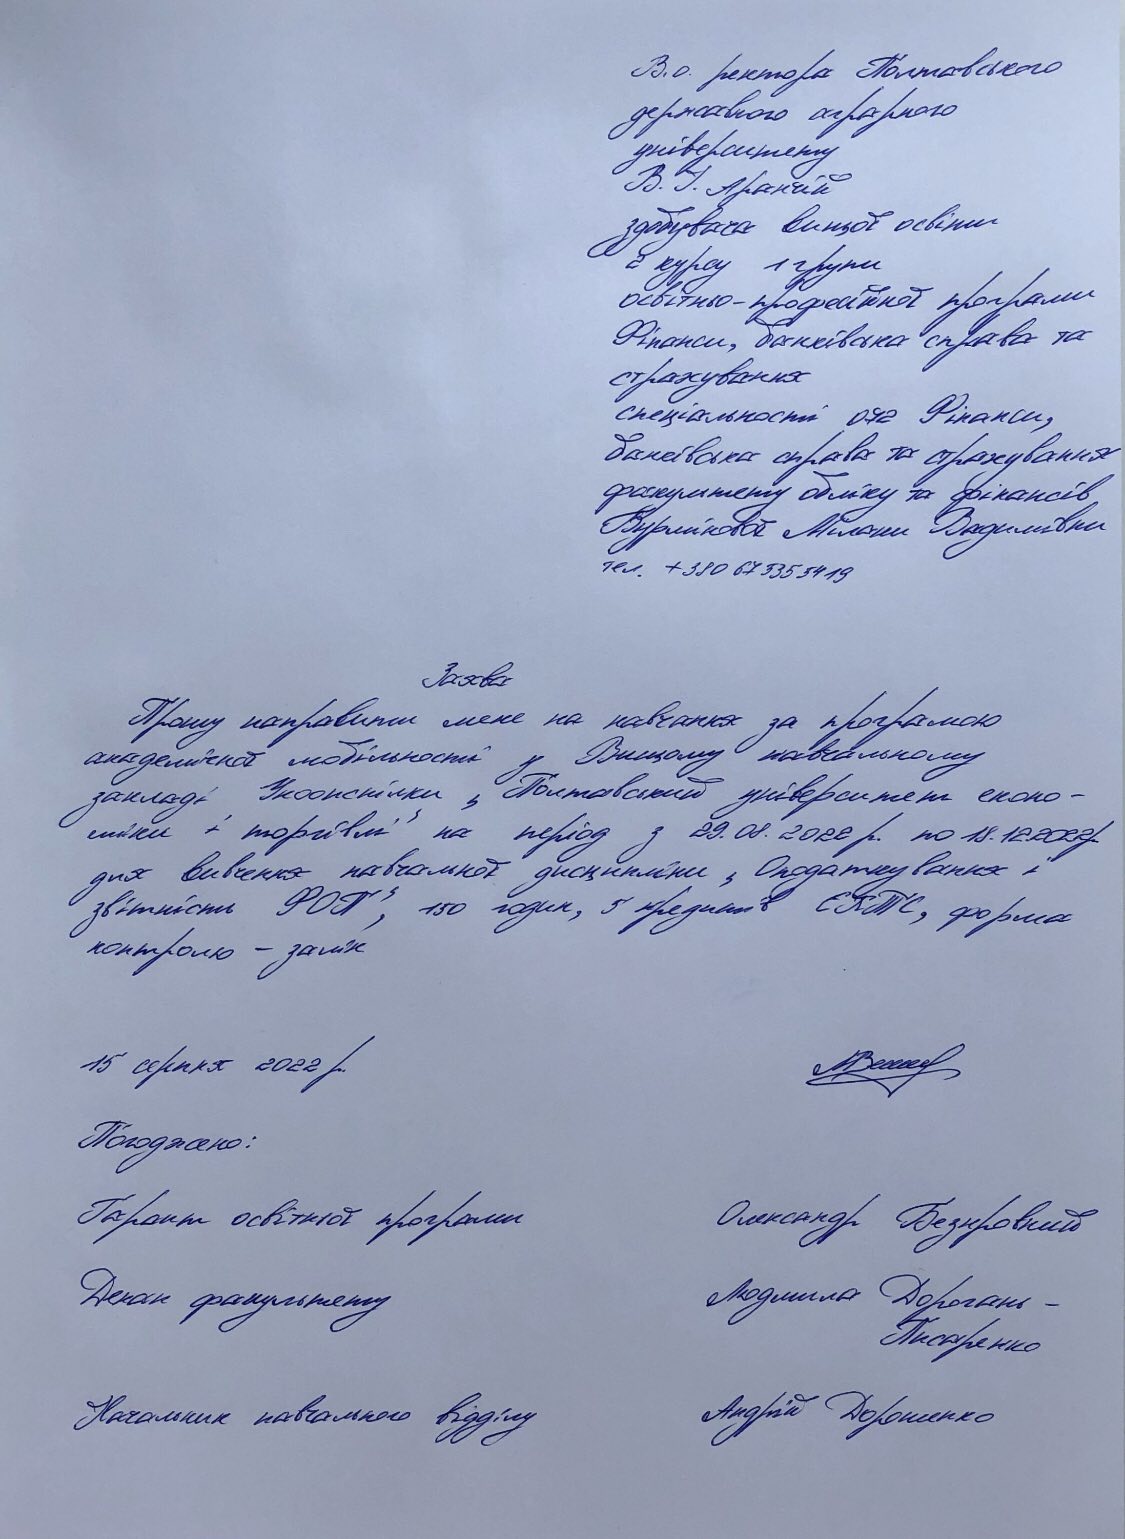 В.о. ректора Полтавського
державного аграрного
університету
В.І. Аранчій
здобувача вищої освіти
2 курсу 1 групи
освітньо-професійної програми
Фінанси, банківська справа та
страхування
спеціальності 072 Фінанси,
банківська справа та страхування
факультету обліку та фінансів
Мілани Вадимівни
тел. +380 67 5355419
Заява
Прошу направити мене на навчання за програмою
академічної мобільності у Вищому навчальному
закладі Укоопспілки „Полтавський університет еконо-
міки і торгівлі” на період з 29.08.2022 р. по 18.12.2022р.
для вивчення навчальної дисципліни „Оподаткування і
звітність ФОП”, 150 годин, 5 кредитів ЄКТС, форма
контролю – залік
15 серпня 2022 р.
Погоджено:
Гарант освітньої програми Олександр Безкровний
Декан факультету Людмила Дорогань-
Писаренко
Начальник навчального відділу Андрій Дорошенко